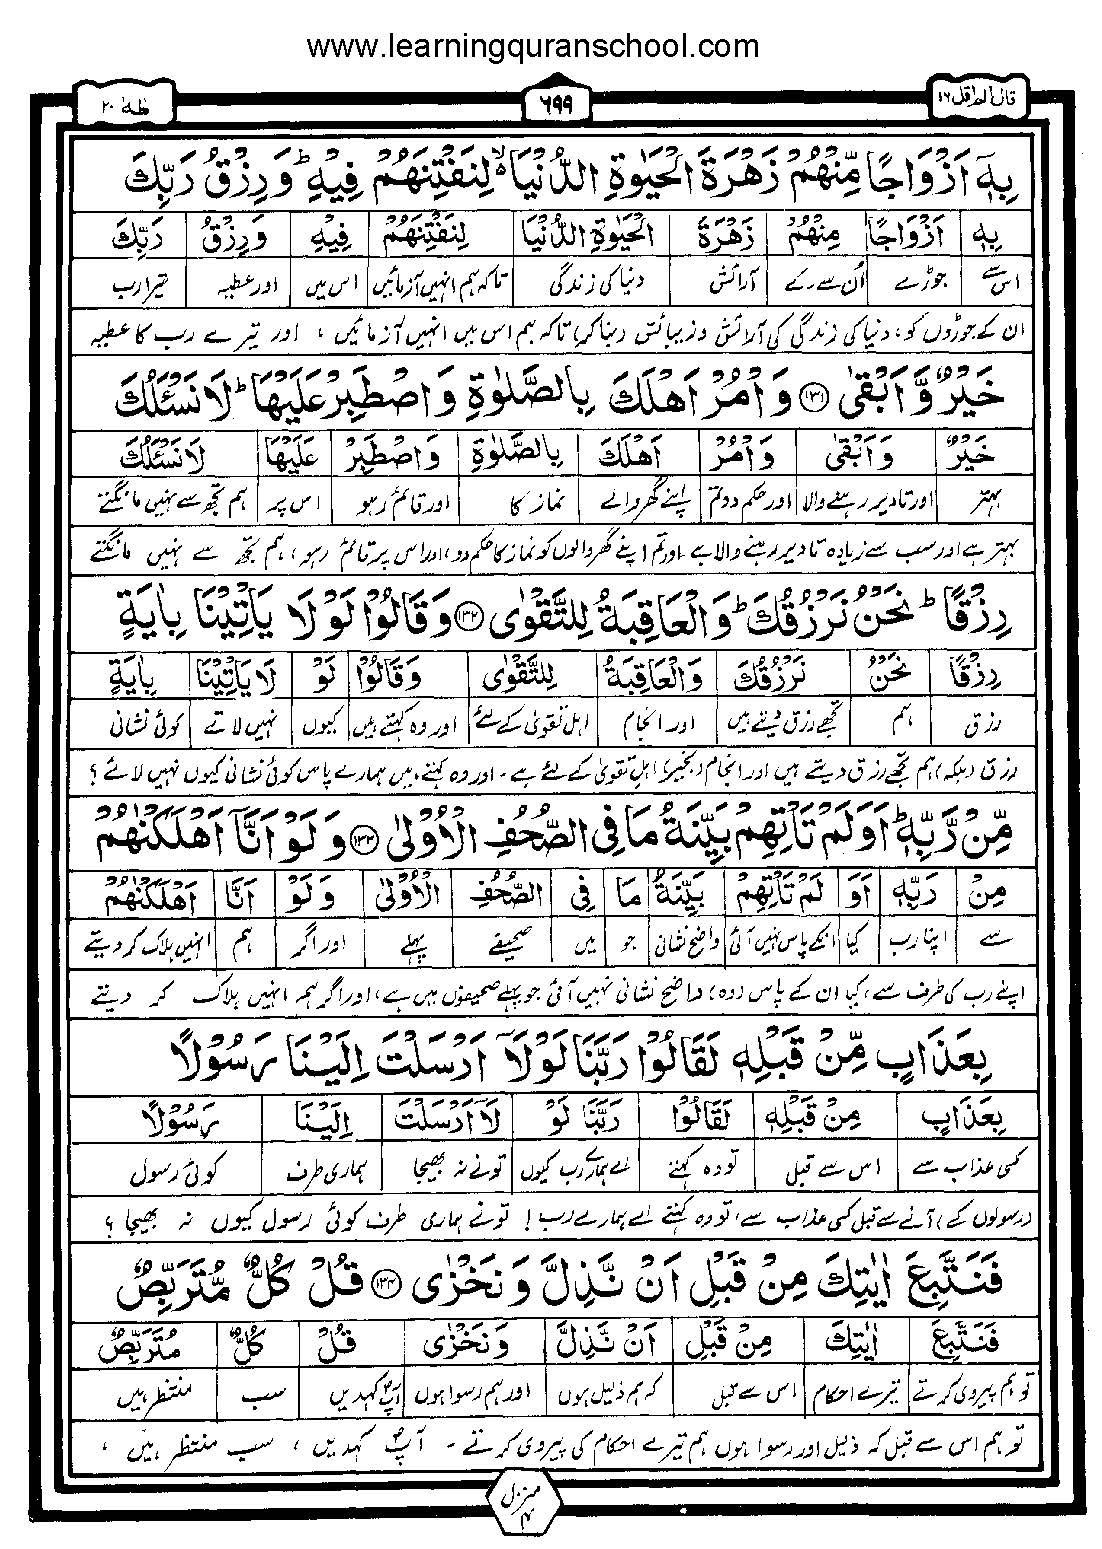 www.learningquranschool.com
قال الم اقل ۱۶ ۶۹۹ طٰهٰ ۲۰
بِهٖۤ اَزْوَاجًا مِّنْهُمْ زَهْرَةَ الْحَيٰوةِ الدُّنْيَا ۙ لِنَفْتِنَهُمْ فِيْهِ ؕ وَ رِزْقُ رَبِّكَ
بِهٖۤ اَزْوَاجًا مِنْهُمْ زَهْرَةَ الْحَيٰوةِ الدُّنْيَا لِنَفْتِنَهُمْ فِيْهِ وَ رِزْقُ رَبِّكَ
اس سے جوڑے اُن سے رکے آرائش دنیا کی زندگی تاکہ ہم انہیں آزمائیں اس میں اور عطیہ تیرا رب
ان کے جوڑوں کو، دنیا کی زندگی کی آرائش و زیبائش (بنا کر) تاکہ ہم اس میں انہیں آزمائیں ، اور تیرے رب کا عطیہ
خَيْرٌ وَّ اَبْقٰى ۱۳۱ وَ اْمُرْ اَهْلَكَ بِالصَّلٰوةِ وَ اصْطَبِرْ عَلَيْهَا ؕ لَا نَسْئَلُكَ
خَيْرٌ وَ اَبْقٰى وَ اْمُرْ اَهْلَكَ بِالصَّلٰوةِ وَ اصْطَبِرْ عَلَيْهَا لَا نَسْئَلُكَ
بہتر اور تا دیر رہنے والا اور حکم دو تم اپنے گھر والے نماز کا اور قائم رہو اس پر ہم تجھ سے نہیں مانگتے
بہتر ہے اور سب سے زیادہ تا دیر رہنے والا ہے اور تم اپنے گھر والوں کو نماز کا حکم دو، اور اس پر قائم رہو، ہم تجھ سے نہیں مانگتے
رِزْقًا ؕ نَحْنُ نَرْزُقُكَ ؕ وَ الْعَاقِبَةُ لِلتَّقْوٰى ۱۳۲ وَ قَالُوْا لَوْ لَا يَاْتِيْنَا بِاٰيَةٍ
رِزْقًا نَحْنُ نَرْزُقُكَ وَ الْعَاقِبَةُ لِلتَّقْوٰى وَ قَالُوْا لَوْ لَا يَاْتِيْنَا بِاٰيَةٍ
رزق ہم تجھے رزق دیتے ہیں اور انجام اہل تقویٰ کے لئے اور وہ کہتے ہیں کیوں نہیں لاتے کوئی نشانی
رزق (بلکہ) ہم تجھے رزق دیتے ہیں اور انجام (بخیر) اہلِ تقویٰ کے لئے ہے - اور وہ کہتے ہیں ہمارے پاس کوئی نشانی کیوں نہیں لائے ؟
مِّنْ رَّبِّهٖ ؕ اَوَ لَمْ تَاْتِهِمْ بَيِّنَةُ مَا فِى الصُّحُفِ الْاُوْلٰى ۱۳۳ وَ لَوْ اَنَّاۤ اَهْلَكْنٰهُمْ
مِنْ رَبِّهٖ اَوَ لَمْ تَاْتِهِمْ بَيِّنَةُ مَا فِى الصُّحُفِ الْاُوْلٰى وَ لَوْ اَنَّا اَهْلَكْنٰهُمْ
سے اپنا رب کیا انکے پاس نہیں آئی واضح نشانی جو میں صحیفے پہلے اور اگر ہم انہیں ہلاک کر دیتے
اپنے رب کی طرف سے، کیا ان کے پاس (وہ) واضح نشانی نہیں آئی جو پہلے صحیفوں میں ہے، اور اگر ہم انہیں ہلاک کر دیتے
بِعَذَابٍ مِّنْ قَبْلِهٖ لَقَالُوْا رَبَّنَا لَوْ لَاۤ اَرْسَلْتَ اِلَيْنَا رَسُوْلًا
بِعَذَابٍ مِنْ قَبْلِهٖ لَقَالُوْا رَبَّنَا لَوْ لَاۤ اَرْسَلْتَ اِلَيْنَا رَسُوْلًا
کسی عذاب سے اس سے قبل تو وہ کہتے اے ہمارے رب کیوں تونے نہ بھیجا ہماری طرف کوئی رسول
(رسولوں کے) آنے سے قبل کسی عذاب سے، تو وہ کہتے اے ہمارے رب! تونے ہماری طرف کوئی رسول کیوں نہ بھیجا ؟
فَنَتَّبِعَ اٰيٰتِكَ مِنْ قَبْلِ اَنْ نَّذِلَّ وَ نَخْزٰى ۱۳۴ قُلْ كُلٌّ مُّتَرَبِّصٌ
فَنَتَّبِعَ اٰيٰتِكَ مِنْ قَبْلِ اَنْ نَّذِلَّ وَ نَخْزٰى قُلْ كُلٌّ مُتَرَبِّصٌ
تو ہم پیروی کرتے تیرے احکام اس سے قبل کہ ہم ذلیل ہوں اور ہم رسوا ہوں آپ کہدیں سب منتظر ہیں
تو ہم اس سے قبل کہ ذلیل اور رسوا ہوں ہم تیرے احکام کی پیروی کرتے - آپ کہدیں ، سب منتظر ہیں ،
منزل ۴